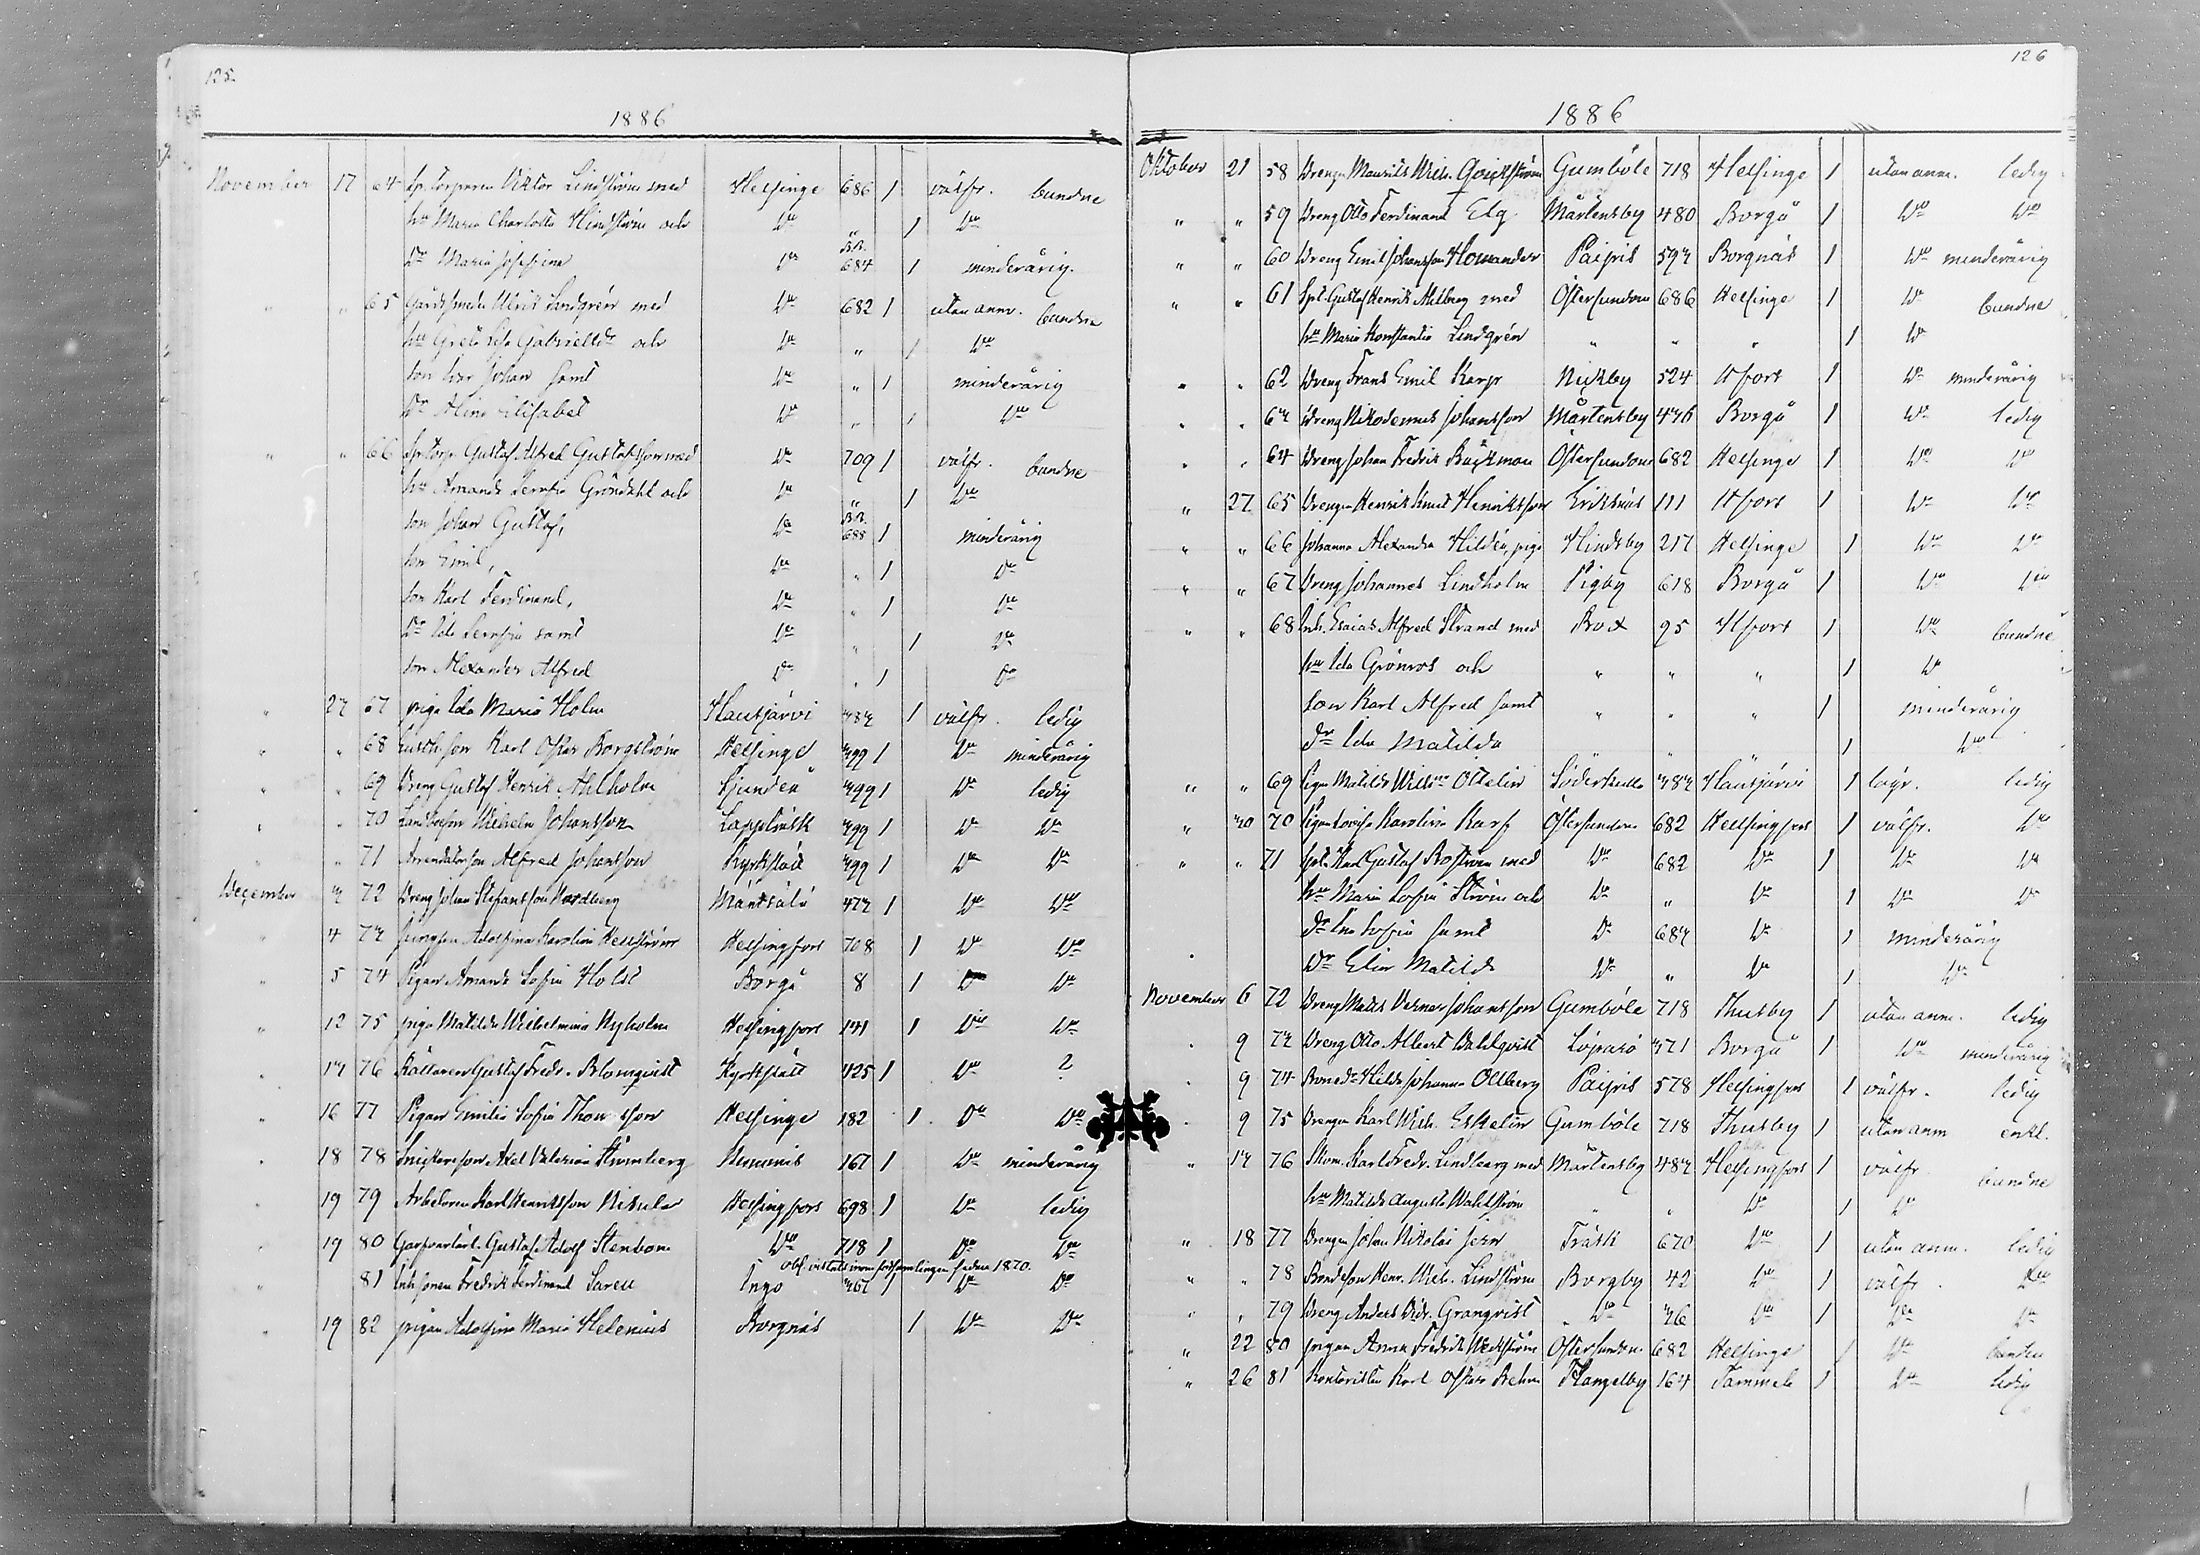 125.
1886
November 17 64 Sp. Torparen Viktor Lindström med Helsinge 686 1 välfr. bundne
hu Maria Charlotta Hindström och Do " 1 Do
Dr Maria Josefina Do B.B. 684 1 minderårig.
" " 65 Ulrik Sandgrén med Do 682 1 utan anm. bundne
hu Greta Lisa och Do " 1 Do
son Ivar Johan samt Do " 1 minderårig
Dr Alina Elisabet Do " 1 Do
" " 66 Sp. torp. Gustaf Alfred Gustafsson med Do 709 1 välfr. bundne
hu Amanda Serafia Gröndahl och Do " 1 Do
son Johan Gustaf, Do B.B. 688 1 minderårig
son Emil, Do " 1 Do
son Karl Ferdinand, Do " 1 Do
Dr Ida Serafia samt Do " 1 Do
son Alexander Alfred Do " 1 Do
" 23 67 piga Ida Maria Holm Hausjärvi 383 1 välfr. ledig
" " 68 son Karl Oskar Borgström Helsinge 399 1 Do minderårig
" " 69 Dreng Gustaf Henrik Ahlholm Sjundeå 399 1 Do ledig
" " 70 Wilhelm Johansson Lappträsk 399 1 Do Do
" " 71 Alfred Johansson Kyrkslätt 399 1 Do Do
December 3 72 Dreng Johan Stefansson Nordberg Mäntsälä 473 1 Do Do
" 4 73 Adolfina Karolina Hellström Helsingfors 708 1 Do Do
" 5 74 Pigan Amanda Sofia Holst Borgå 8 1 Do Do
" 12 75 piga Matilda Wilhelmina Nyholm Helsingfors 131 1 Do Do
" 13 76 Gustaf Fredr. Blomqvist Kyrkslätt 425 1 Do ?
" 16 77 Pigan Emilia Sofia Thomsson Helsinge 182 1 Do Do
" 18 78 Axel Valerian Nummis 167 1 Do minderårig
" 19 79 Karl Henriksson Nikula Helsingfors 698 1 Do ledig
" 19 80 Gustaf Adolf Stenbom Do 718 1 Do Do
församlingen sedan 1870.
" 81 Fredrik Ferdinand Saren Ingo 367 1 Do Do
" 19 82 pigan Adolfina Maria Helenius Borgnäs 1 Do Do
126
1886
Oktober 21 58 Drengen Maurits Wilh. Gumböle 718 Helsinge 1 utan anm. ledig
" " 59 Dreng Otto Ferdinand Elg Mårtensby 480 Borgå 1 Do Do
" " 60 Dreng Emil Johansson Paipis 593 Borgnäs 1 Do minderårig
" " 61 Gustaf Henrik Ahlberg med Östersundom 686 Helsinge 1 Do bundne
hu Maria Konstantia Lindgrén " " " 1 Do
" " 62 Dreng Frans Emil Karp Nickby 524 Hfors 1 Do minderårig
" " 63 Dreng Nikodemus Johansson Mårtensby 476 Borgå 1 Do ledig
" " 64 Dreng Johan Fredrik Bäckman Östersundom 682 Helsinge 1 Do Do
" 27 65 Drengen Henrik Knut Henriksson Eriksnäs 111 Hfors 1 Do Do
" " 66 Johanna Alexandra Hildén, piga Hindsby 217 Helsinge 1 Do Do
" " 67 Dreng Johannes Lindholm Pigby 618 Borgå 1 Do Do
" " 68 Inh. Esaias Alfred Strand med Box 95 Hfors 1 Do bundne
hu Ida Grönroos och " " " 1 Do
son Karl Alfred samt " " " 1 minderårig
Dr Ida Matilda " " " 1 Do
" " 69 Pigan Matilda Wilhna Ottelin Söderkulla 383 Hausjärvi 1 ledig
" 30 70 Pigan Lovisa Karolina Karf Östersundom 682 Helsingfors 1 välfr. Do
" " 71 Karl Gustaf Boström med Do 682 Do 1 Do Do
hu Maria Sofia Ström och Do " Do 1 Do Do
Dr Ina Sofia samt Do 683 Do 1 minderårig
Dr Elin Matilda Do " Do 1 Do
November 6 72 Dreng Mats Verner Johansson Gumböle 718 Thusby 1 utan anm. ledig
" 9 73 Dreng Otto Albert Wahlqvist Löparö 371 Borgå 1 Do minderårig
" 9 74 Bonedr Hilda Johanna Ollberg Paipis 578 Helsingfors 1 välfr. ledig
" 9 75 Drengen Karl Wilh. Eskelin Gumböle 718 Thusby 1 utan anm enkl.
" 13 76 Karl Fredr. Lindberg med Mårtensby 483 Helsingfors 1 välfr bundne
hu Matilda Augusta Wahlström " " Do 1 Do
" 18 77 Drengen Johan Nikolai Jern Träsk 670 Do 1 utan anm. ledig
" " 78 Bondeson Henr. Wilh. Lindström Borgby 42 Do 1 välfr. Do
" " 79 Dreng Anders Vidr. Granqvist Do 36 Do 1 Do Do
" 22 80 pigan Anna Fredrika Weckström Östersundom 682 Helsinge 1 Do
" 26 81 Kontoristen Karl Oskar Rehn Hangelby 164 Tammela 1 Do ledig